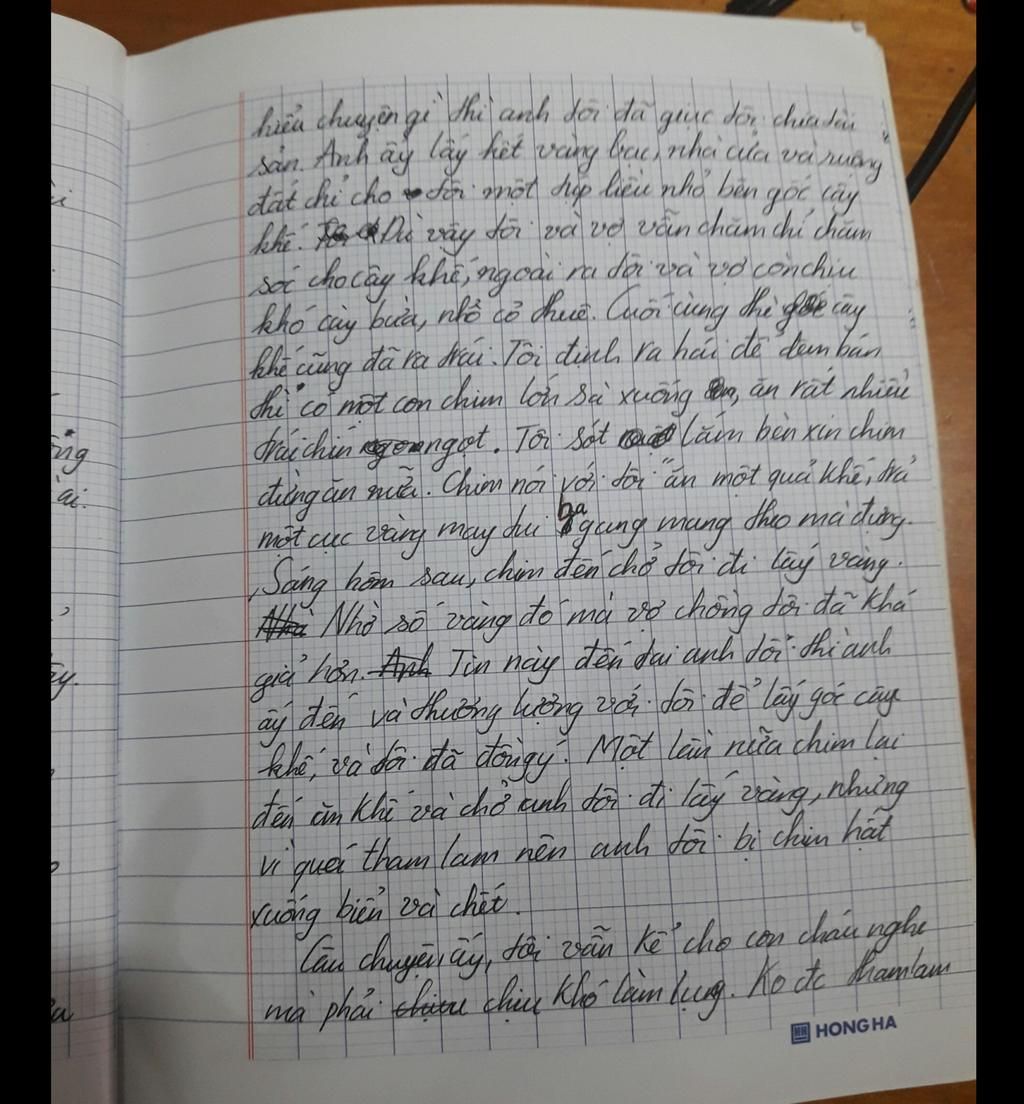 hiểu chuyện gì thì anh tôi đã giục tôi chia tài
sản. Anh ấy lấy hết vàng bạc, nhà cửa và ruộng
đất chỉ cho tôi một túp lều nhỏ bên gốc cây
khế. Dù vậy tôi và vợ vẫn chăm chỉ chăm
sóc cho cây khế, ngoài ra tôi và vợ còn chịu
khó cày bừa, nhổ cỏ thuê. Cuối cùng thì cây
khế cũng đã ra trái. Tôi định ra hái để đem bán
thì có một con chim lớn sà xuống, ăn rất nhiều
trái chín ngọt. Tôi sót lắm bèn xin chim
đừng ăn nữa. Chim nói với tôi "ăn một quả khế, trả
một cục vàng may túi ba gang mang theo mà đựng.
Sáng hôm sau, chim đến chở tôi đi lấy vàng.
Nhờ số vàng đó mà vợ chồng tôi đã khá
giả hơn. Tin này đến tai anh tôi thì anh
ấy đến và thương lượng với tôi để lấy gốc cây
khế, và tôi đã đồng ý. Một lần nữa chim lại
đến ăn khế và chở anh tôi đi lấy vàng, nhưng
vì quá tham lam nên anh tôi bị chim hất
xuống biển và chết.
Câu chuyện ấy, tôi vẫn kể cho con cháu nghe
mà phải chịu khó làm lụng. Ko đc tham lam
HONG HA
ng
ai.
ây.